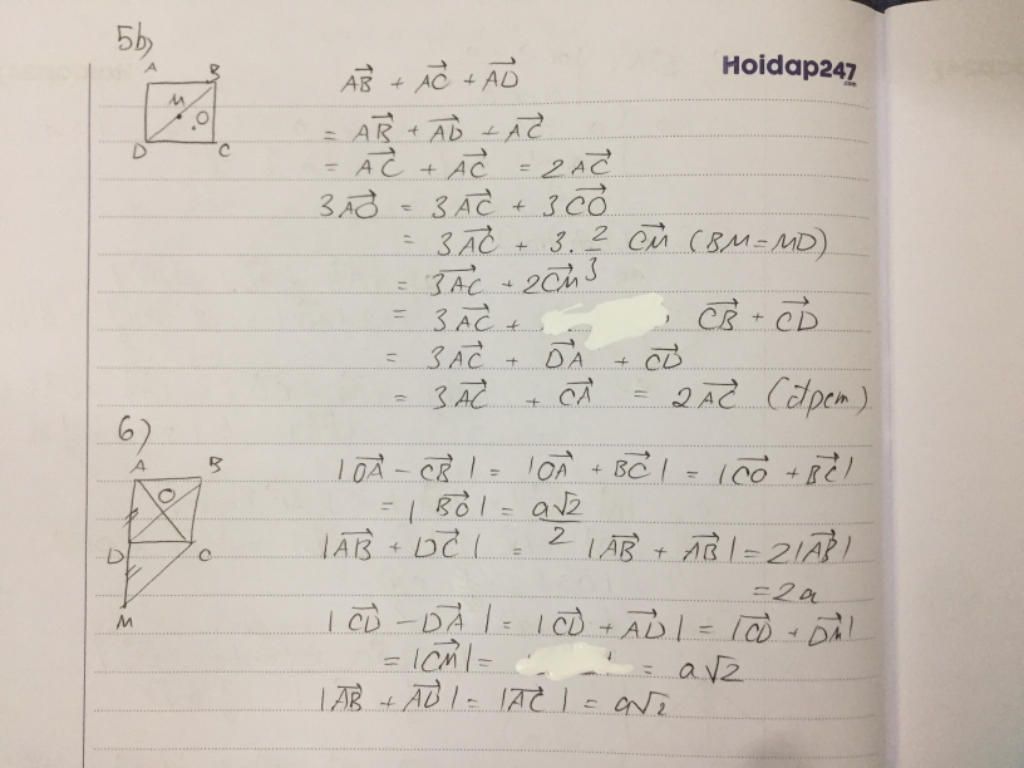 5b)
A B
M
O
D C
Hoidap247
.com
AB→ + AC→ + AD→
= AB→ + AD→ + AC→
= AC→ + AC→ = 2AC→
3AO→ = 3AC→ + 3CO→
= 3AC→ + 3. 2/3 CM→ (BM = MD)
= 3AC→ + 2CM→
= 3AC→ + CB→ + CD→
= 3AC→ + DA→ + CD→
= 3AC→ + CA→ = 2AC→ (đpcm)
6)
A B
O
D C
M
|OA→ - CB→| = |OA→ + BC→| = |CO→ + BC→|
= |BO→| = a√2/2
|AB→ + DC→| = |AB→ + AB→| = 2|AB→|
= 2a
|CD→ - DA→| = |CD→ + AD→| = |CD→ + DM→|
= |CM→| = = a√2
|AB→ + AD→| = |AC→| = a√2